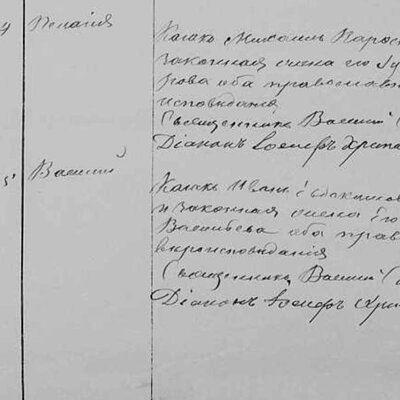 4 Пелагія
Казакъ Михаилъ
законная жена его
рова оба православн
исповѣданія
Священникъ Василій
Діаконъ Іосифъ Хри
5 Василій
Казакъ Иванъ
и законная жена его
Васильева оба прав
вѣроисповѣданія
Священникъ Василій
Діаконъ Іосифъ Хри